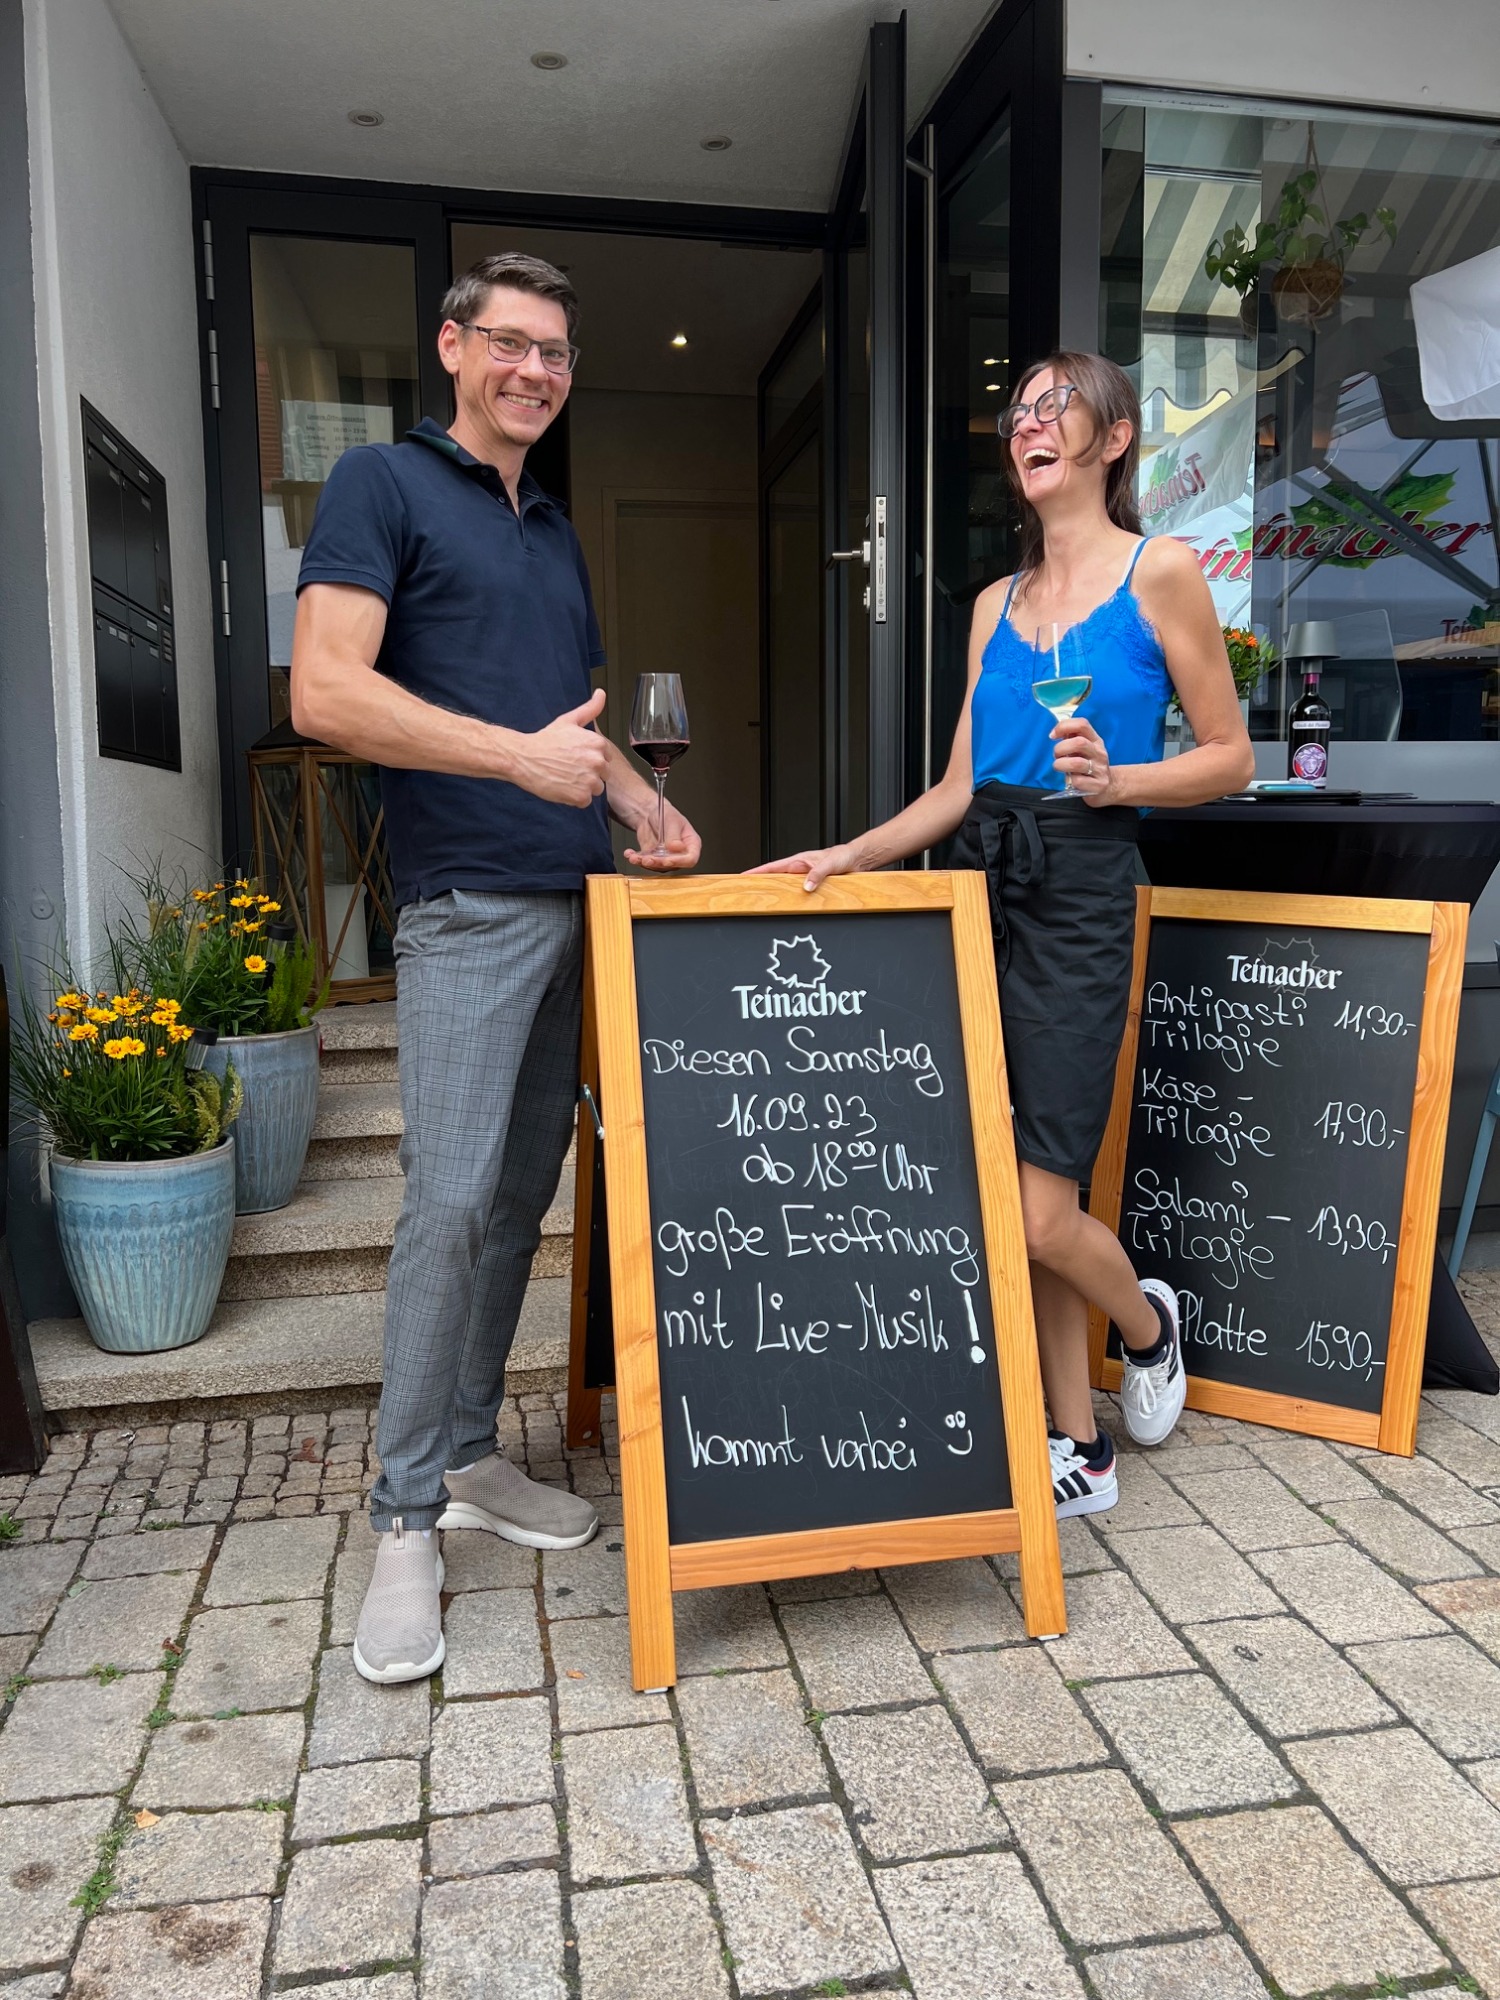 Teinacher
Diesen Samstag
16.09.23
ab 18⁰⁰ Uhr
große Eröffnung
mit Live-Musik!
kommt vorbei
Teinacher
Antipasti 11,30,-
Trilogie
Käse - 17,90,-
Trilogie
Salami - 13,30,-
Trilogie
Platte 15,90,-
Teinacher